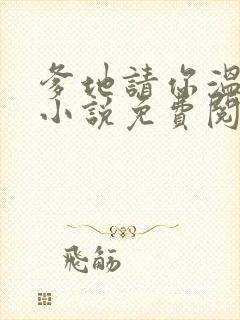 爹地請你溫
小說免費閱
飛觞